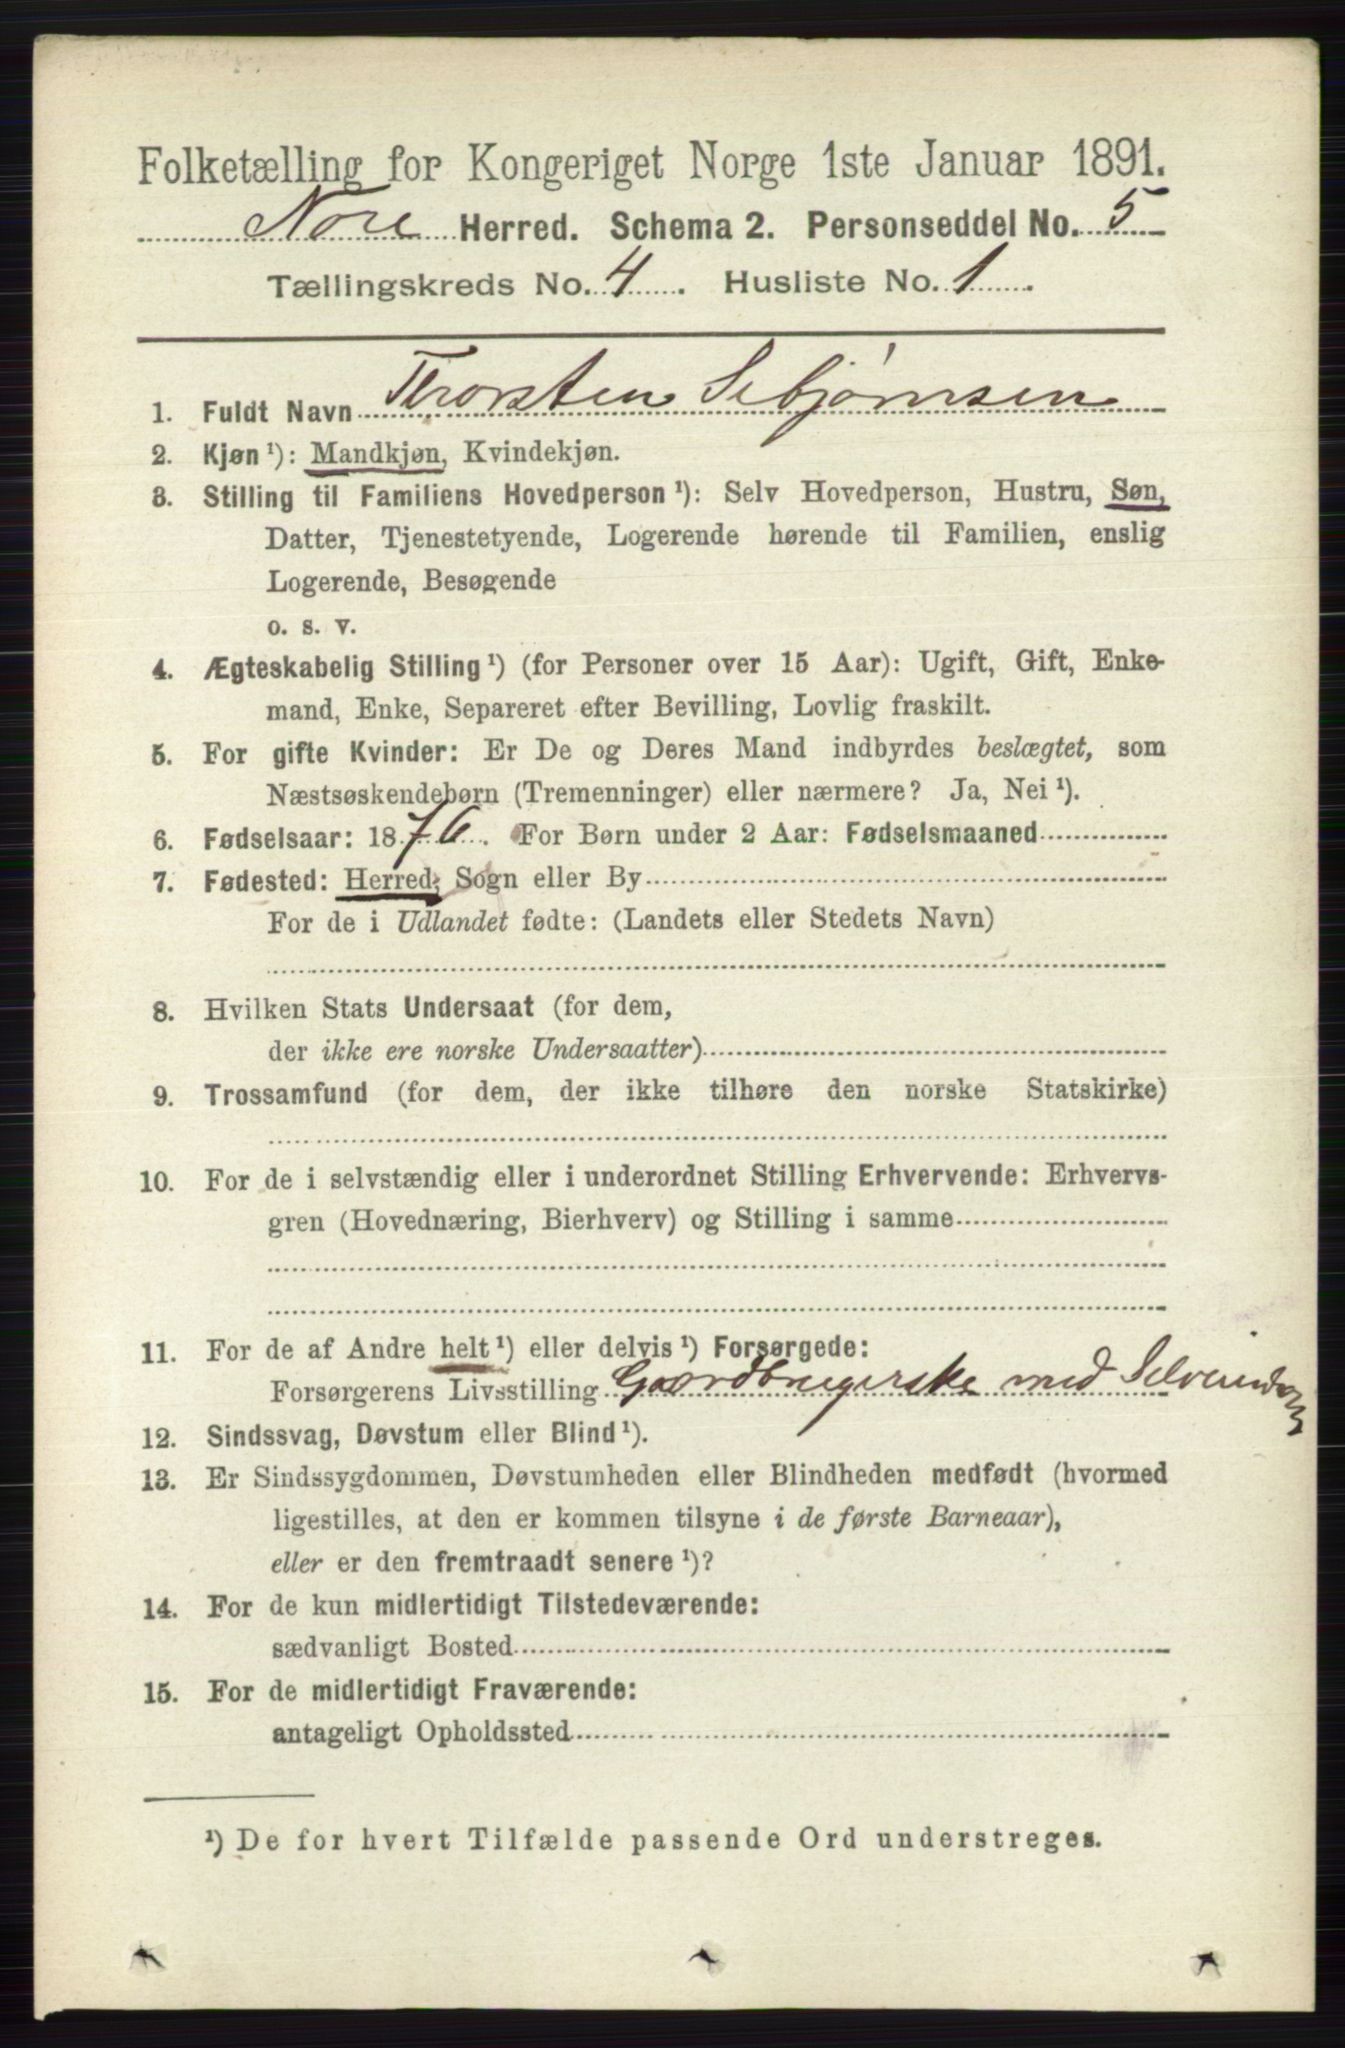 Folketælling for Kongeriget Norge 1ste Januar 1891.
Nore Herred. Schema 2. Personseddel No. 5
Tællingskreds No. 4. Husliste No. 1.
1. Fuldt Navn Thorsten Sebjørnsen
2. Kjøn ¹): Mandkjøn, Kvindekjøn.
3. Stilling til Familiens Hovedperson ¹): Selv Hovedperson, Hustru, Søn,
Datter, Tjenestetyende, Logerende hørende til Familien, enslig
Logerende, Besøgende
o. s. v.
4. Ægteskabelig Stilling ¹) (for Personer over 15 Aar): Ugift, Gift, Enke-
mand, Enke, Separeret efter Bevilling, Lovlig fraskilt.
5. For gifte Kvinder: Er De og Deres Mand indbyrdes beslægtet, som
Næstsøskendebørn (Tremenninger) eller nærmere? Ja, Nei ¹).
6. Fødselsaar: 1876. For Børn under 2 Aar: Fødselsmaaned
7. Fødested: Herred, Sogn eller By
For de i Udlandet fødte: (Landets eller Stedets Navn)
8. Hvilken Stats Undersaat (for dem,
der ikke ere norske Undersaatter)
9. Trossamfund (for dem, der ikke tilhøre den norske Statskirke)
10. For de i selvstændig eller i underordnet Stilling Erhvervende: Erhvervs-
gren (Hovednæring, Bierhverv) og Stilling i samme
11. For de af Andre helt ¹) eller delvis ¹) Forsørgede:
Forsørgerens Livsstilling Gaardbrugerske med Selveiendom
12. Sindssvag, Døvstum eller Blind ¹).
13. Er Sindssygdommen, Døvstumheden eller Blindheden medfødt (hvormed
ligestilles, at den er kommen tilsyne i de første Barneaar),
eller er den fremtraadt senere ¹)?
14. For de kun midlertidigt Tilstedeværende:
sædvanligt Bosted
15. For de midlertidigt Fraværende:
antageligt Opholdssted
¹) De for hvert Tilfælde passende Ord understreges.